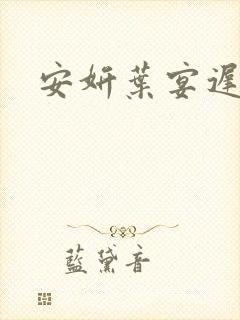 安妍葉宴遲
藍黛音